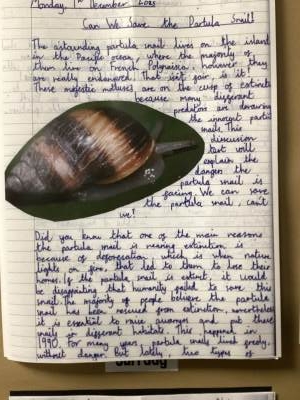 Monday, 1st December 2025
Can We Save the Partula Snail?
The astounding partula snail lives on the island
in the Pacific ocean, where the majority of
them live on French Polynaisia. However they
are really endangered. That isn't fair, is it?
These majestic molluscs are on the cusp of extinction
because many disgerant
predators are devouring
the innocent partula
snails. This
discussion
text will
explain the
danger the
partula snail is
facing. We can save
the partula snail, can't
we!
Did you know that one of the main reasons
the partula snail is nearing extinction is
because of deforestation, which is when nature
lights on fire, that led to them to lose their
homes. If the partula snail is extinct, it would
be disappointing that humanity failed to save this
snail. The majority of people believe the partula
snail has been rescued from extinction, nevertheless
it is essential to raise awareness and put these
snails in different habitats. This happened in
1990. For many years, partula snails lived freely,
without danger. But lately, two types of